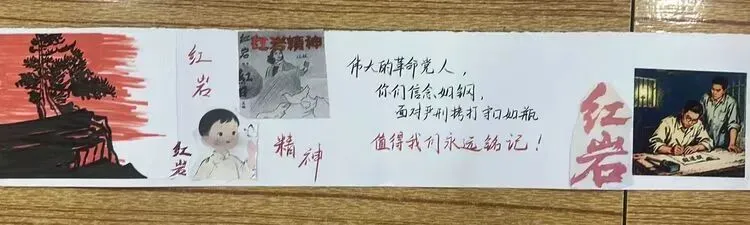 红岩
红岩
红岩精神
红岩
精神
伟大的革命党人，
你们信念如钢，
面对严刑拷打守口如瓶
值得我们永远铭记！
红岩